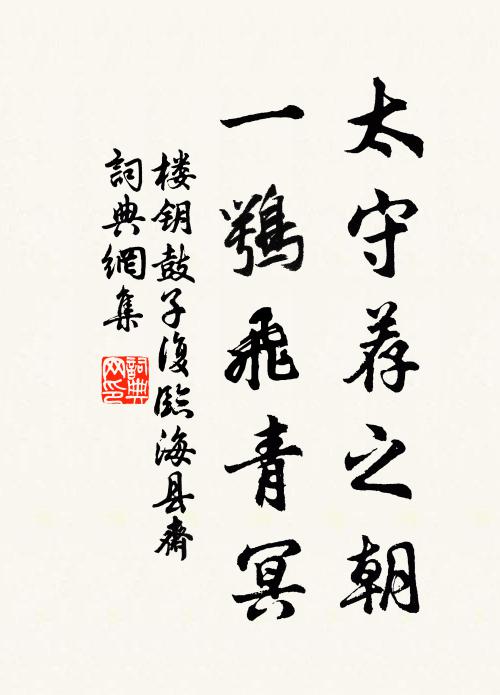 太守荐之朝
一鹗飛青冥
楼钥鼓子復臨海县齋
詞典網集
詞典網印